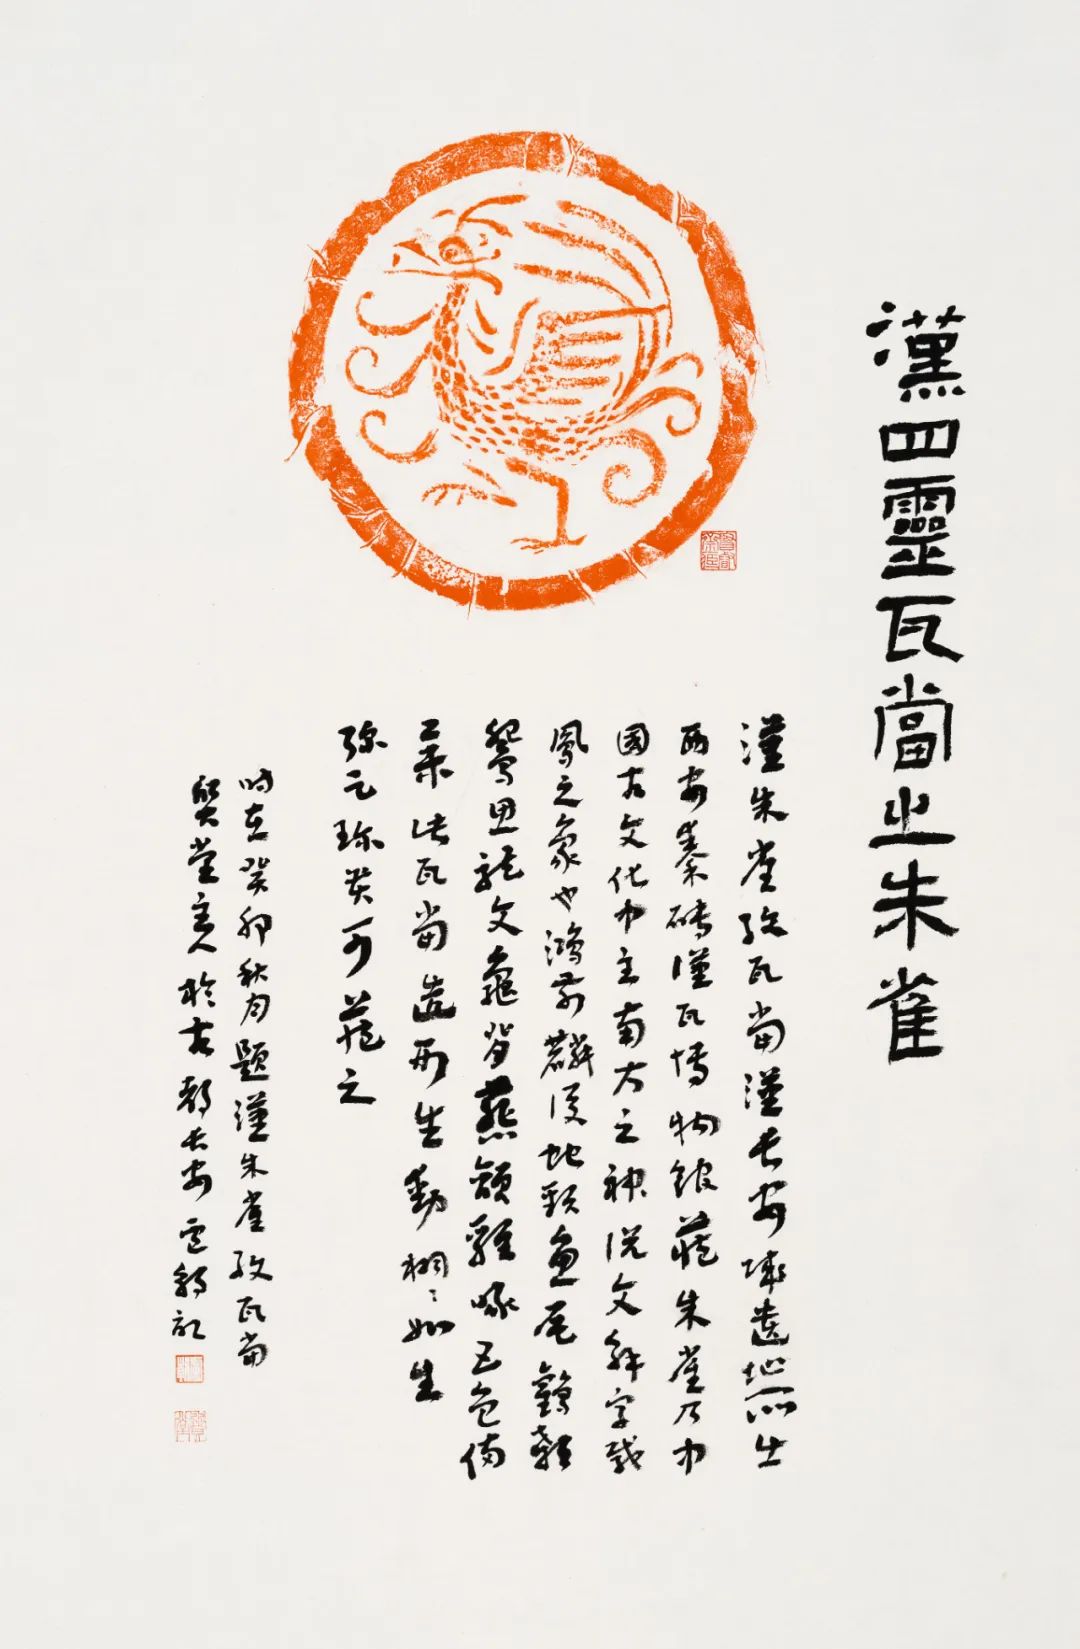 漢四靈瓦當之朱雀
漢朱雀紋瓦當漢長安城遺址所出
西安秦磚漢瓦博物館藏朱雀乃中
國古文化中主南方之神說文解字載
鳳之象也鴻前麟後蛇頸魚尾鸛顙
鴛思龍文龜背燕頷雞啄五色備
舉此瓦當造形生動栩〻如生
弥足珍貴可藏之
時在癸卯秋月題漢朱雀紋瓦當
堂主人於古都長安記